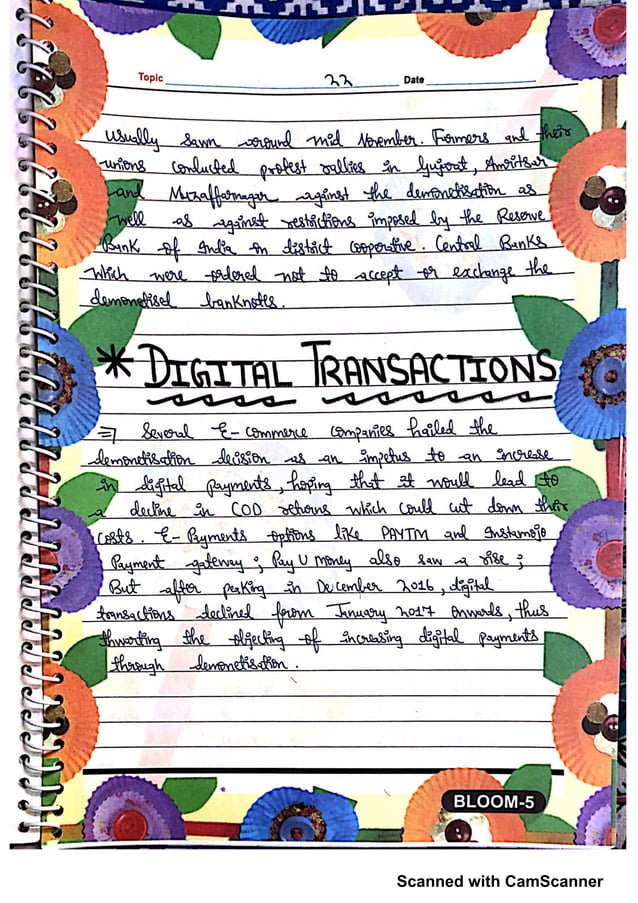 Topic 22 Date
Usually sawn around mid November. Farmers and their
unions conducted protest rallies in Gujarat, Amritsar
and Muzaffarnagar against the demonetisation as
well as against restrictions imposed by the Reserve
Bank of India on district cooperative. Central Banks
which were ordered not to accept or exchange the
demonetised banknotes.
* DIGITAL TRANSACTIONS
⇒ Several E-commerce companies hailed the
demonetisation decision as an impetus to an increase
in digital payments, hoping that it would lead to
a decline in COD returns which could cut down their
costs. E-Payments options like PAYTM and Instamojo
Payment gateway; Pay U money also saw a rise;
But after peaking in December 2016, digital
transactions declined form January 2017 onwards, thus
thwarting the objecting of increasing digital payments
through demonetisation.
BLOOM-5
Scanned with CamScanner